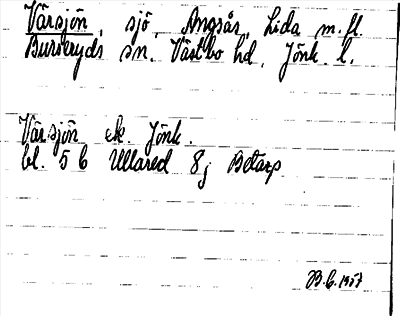 Värsjön, sjö, Angsås, Lida m.fl.
Burseryds sn. Västbo hd, Jönk. l.
Värsjön ek. Jönk.
bl. 5 6 Ullared 8j Betarp
B.G. 1957